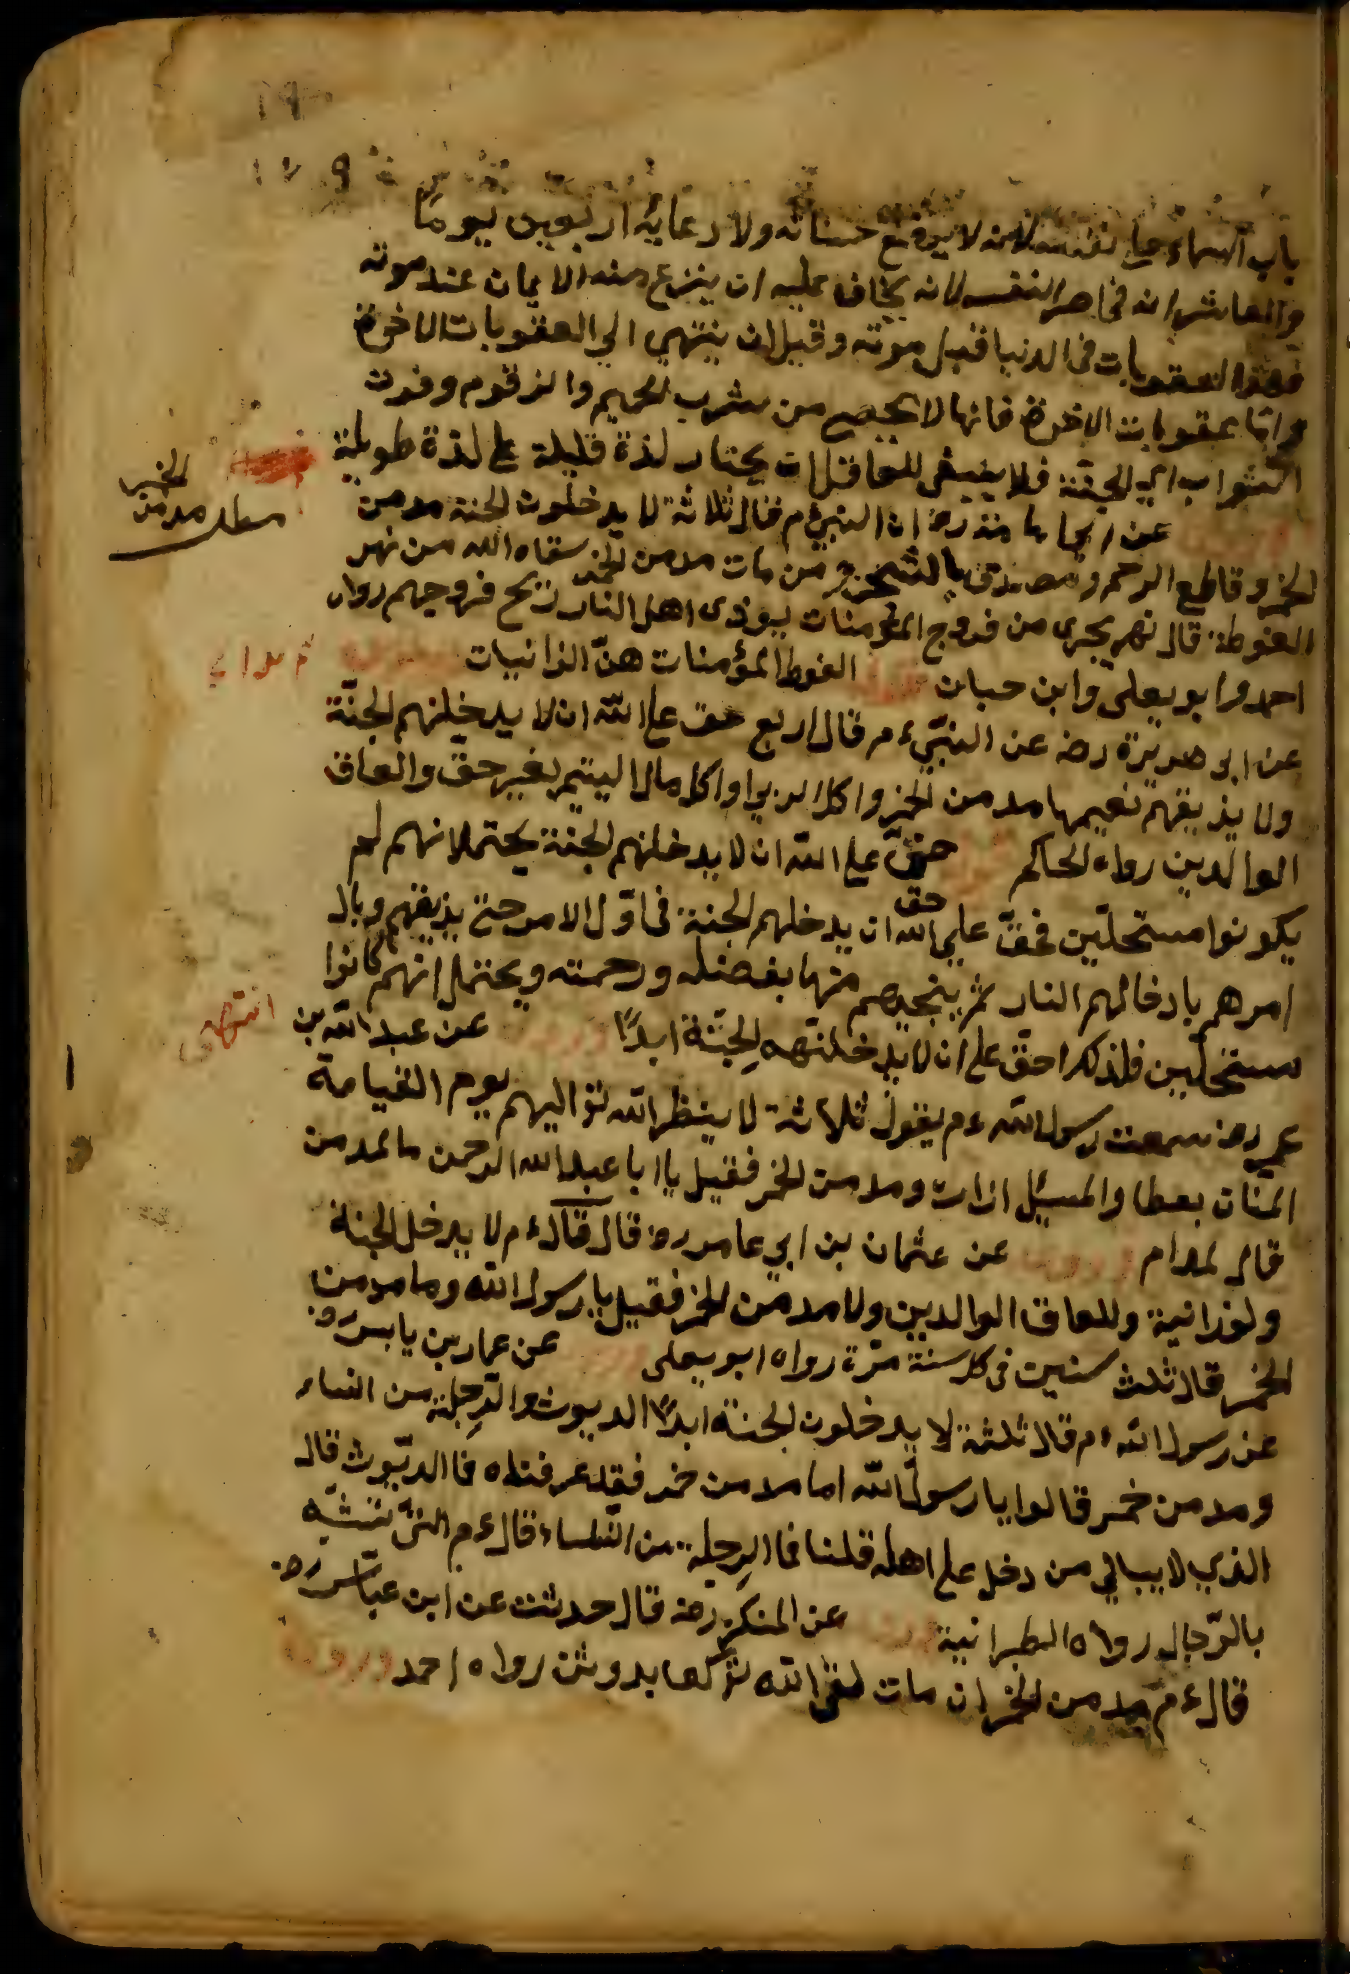 باب السماء على نفسه لانه لا يرفع حسناته ولا دعائه اربعين يوما
والعاشر انه مخاطر النفس لانه يخاف عليه ان ينزع منه الايمان عند موته
فهذا العقوبات فى الدنيا قبل موته وقبل ان ينتهى الى العقوبات الاخرة
واما عقوبات الاخرة فانها لا يحصى من شرب الحميم والزقوم وفوت
الثواب اى الجنة فلا ينبغى للعاقل ان يختار لذة قليلة على لذة طويلة
عن ابى امامة رض ان النبى ءم قال ثلاثة لا يدخلون الجنة مدمن
الخمر وقاطع الرحم ومصدق بالسحر ومن مات مدمن الخمر سقاه الله من نهر
الغوطة قال نهر يجرى من فروج المؤمنات يوذى اهل النار ريح فروجهم رواه
احمد وابو يعلى وابن حبان الغوط المؤمنات هنّ الزانيات
عن ابى هريرة رضه عن النبىّ ءم قال اربع حق على الله ان لا يدخلنهم الجنّة
ولا يذيقهم نعيمها مدمن الخمر واكل الربوا واكل مال اليتيم بغير حقّ والعاق
الوالدين رواه الحاكم حقّ على الله ان لا يدخلنهم الجنة يحتمل انهم لم
يكونوا مستحلّين فحقّ على الله حق ان يدخلهم الجنة فى اوّل الامر حتى يذيقهم وبال
امرهم بادخالهم النار ثم ينجيهم منها بفضله ورحمته ويحتمل انهم كانوا
مستحلّين فلذلك احقّ على ان لا يدخلنهم الجِنّة ابدًا عن عبد الله بن
عمر رض سمعت رسول الله ءم يقول ثلاثة لا ينظر الله تع اليهم يوم القيامة
المنّان بعطا والمسبل ازاره ومدمن الخمر فقيل يا ابا عبد الله الرحمن ما المدمن
قال المدام عن عثمان بن ابى عامر رض قال قال ءم لا يدخل الجنة
ولد زانية وللعاق الوالدين ولا مدمن الخمر فقيل يا رسول الله وما مدمن
الخمر قال ثلث سنين فى كل سنة مرّة رواه ابو يعلى عن عمار بن ياسر رض
عن رسول الله ءم قال ثلثة لا يدخلون الجنة ابدًا الديوث والرّجلة من النساء
ومدمن خمر قالوا يا رسول الله اما مدمن خمر فقد عرفناه فما الديّوث قال
الذى لا يبالى من دخل على اهله قلنا فما الرجلة من النساء قال ءم التى تتشبّه
بالرّجال رواه الطبرانية عن المنكدر رضه قال حدثت عن ابن عبّاس رض
قال ءم مدمن الخمر ان مات لقى الله تع كعابد وثن رواه احمد
مطلب مدمن الخمر
انتهى